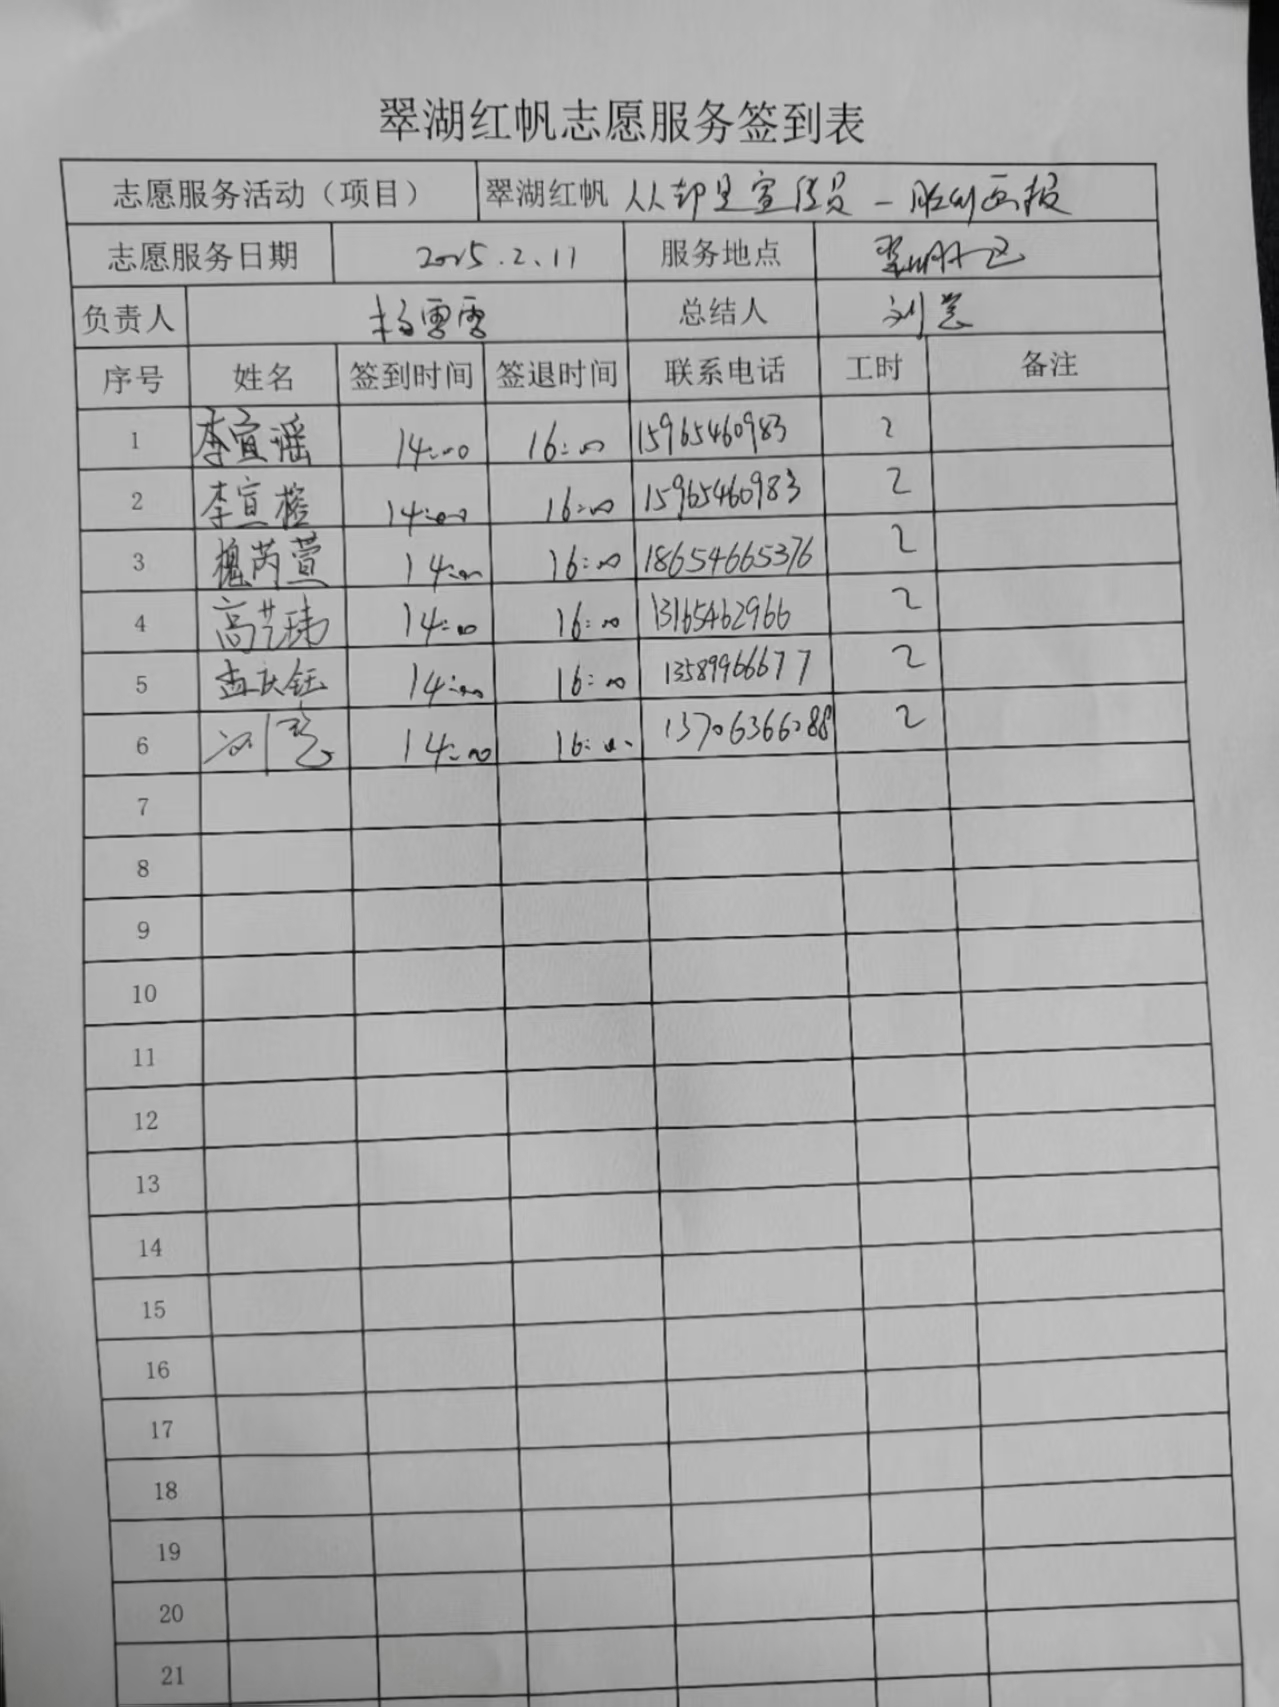 翠湖红帆志愿服务签到表
志愿服务活动（项目） 翠湖红帆 人人都是宣传员－胜利画报
志愿服务日期 2025.2.11 服务地点 翠湖社区
负责人 杨雪雪 总结人 刘慧
序号 姓名 签到时间 签退时间 联系电话 工时 备注
1 李宣谣 14:00 16:00 15965460983 2
2 李宣榕 14:00 16:00 15965460983 2
3 芮萱 14:00 16:00 18654665376 2
4 高艺玮 14:00 16:00 13165462966 2
5 孟庆钰 14:00 16:00 13589966677 2
6 刘慧 14:00 16:00 13706366088 2
7
8
9
10
11
12
13
14
15
16
17
18
19
20
21